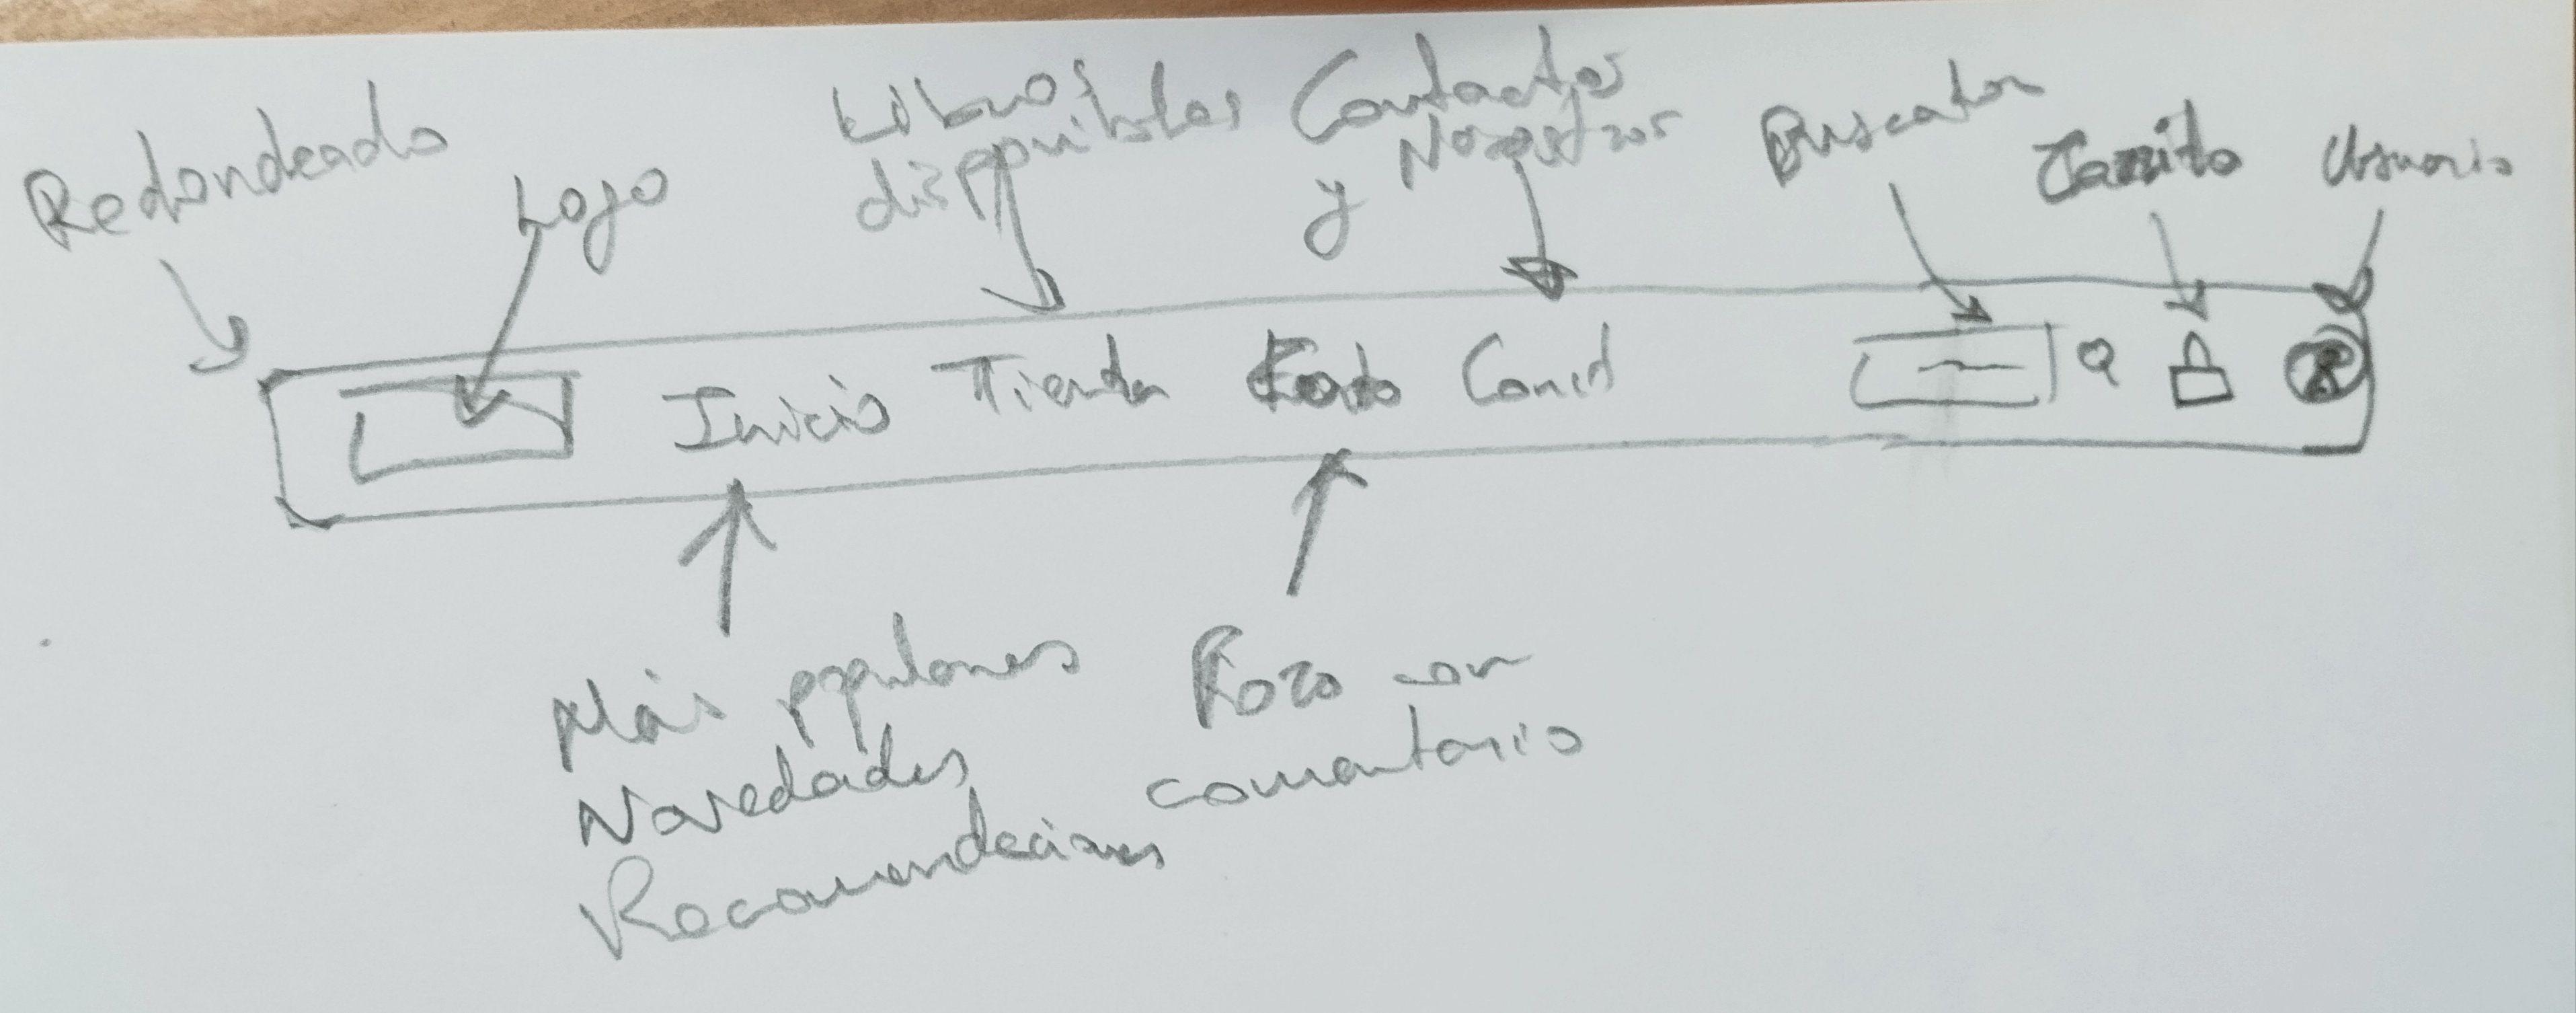 Redondeado
Logo
Libros
disponibles
Contactos
y Nosotros
Buscador
Carrito
Usuario
Inicio Tienda
Más populares
Novedades
Recomendaciones
con
comentario